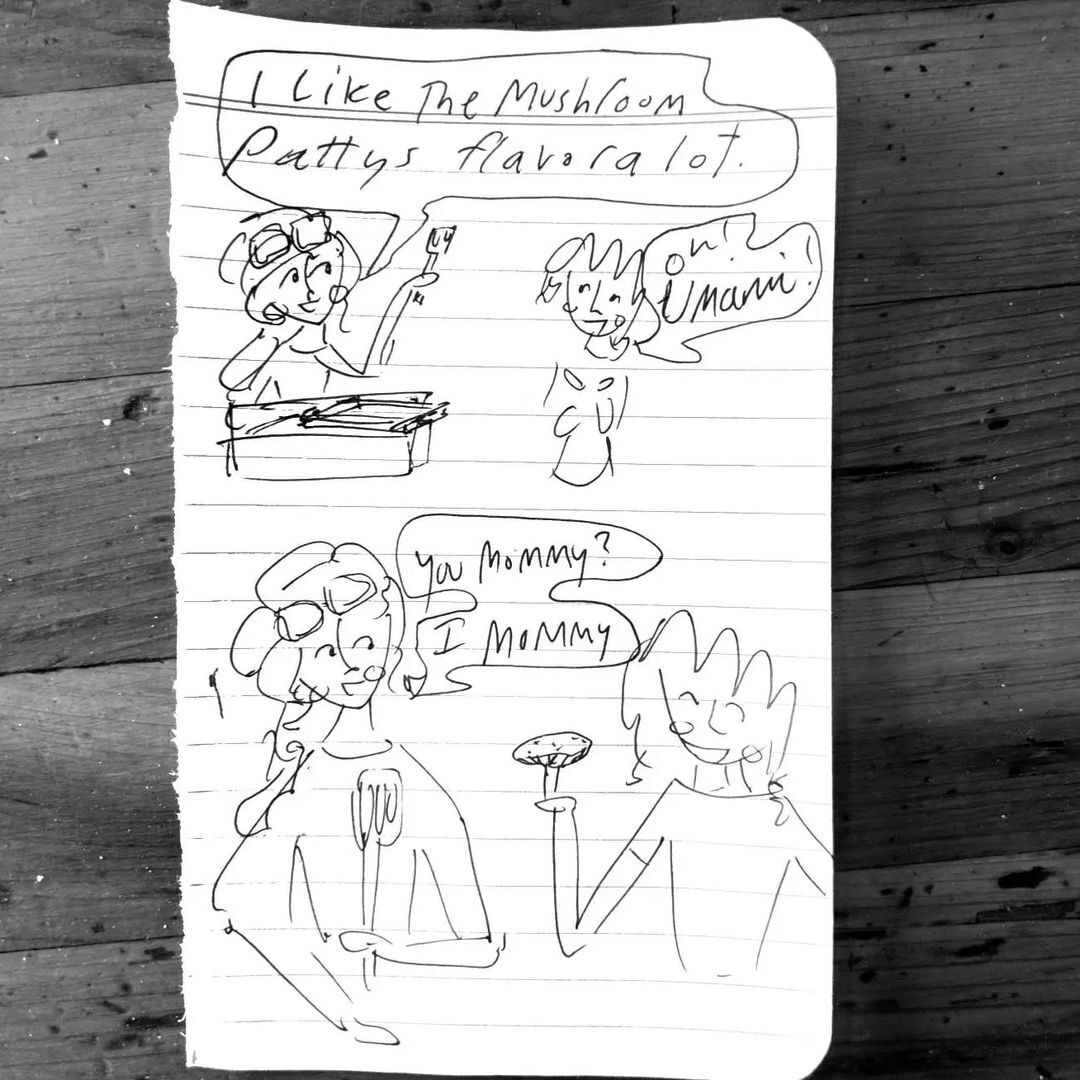 I Like The Mushroom
Pattys flavor a lot.
Oh!
Umami!
You Mommy?
I Mommy